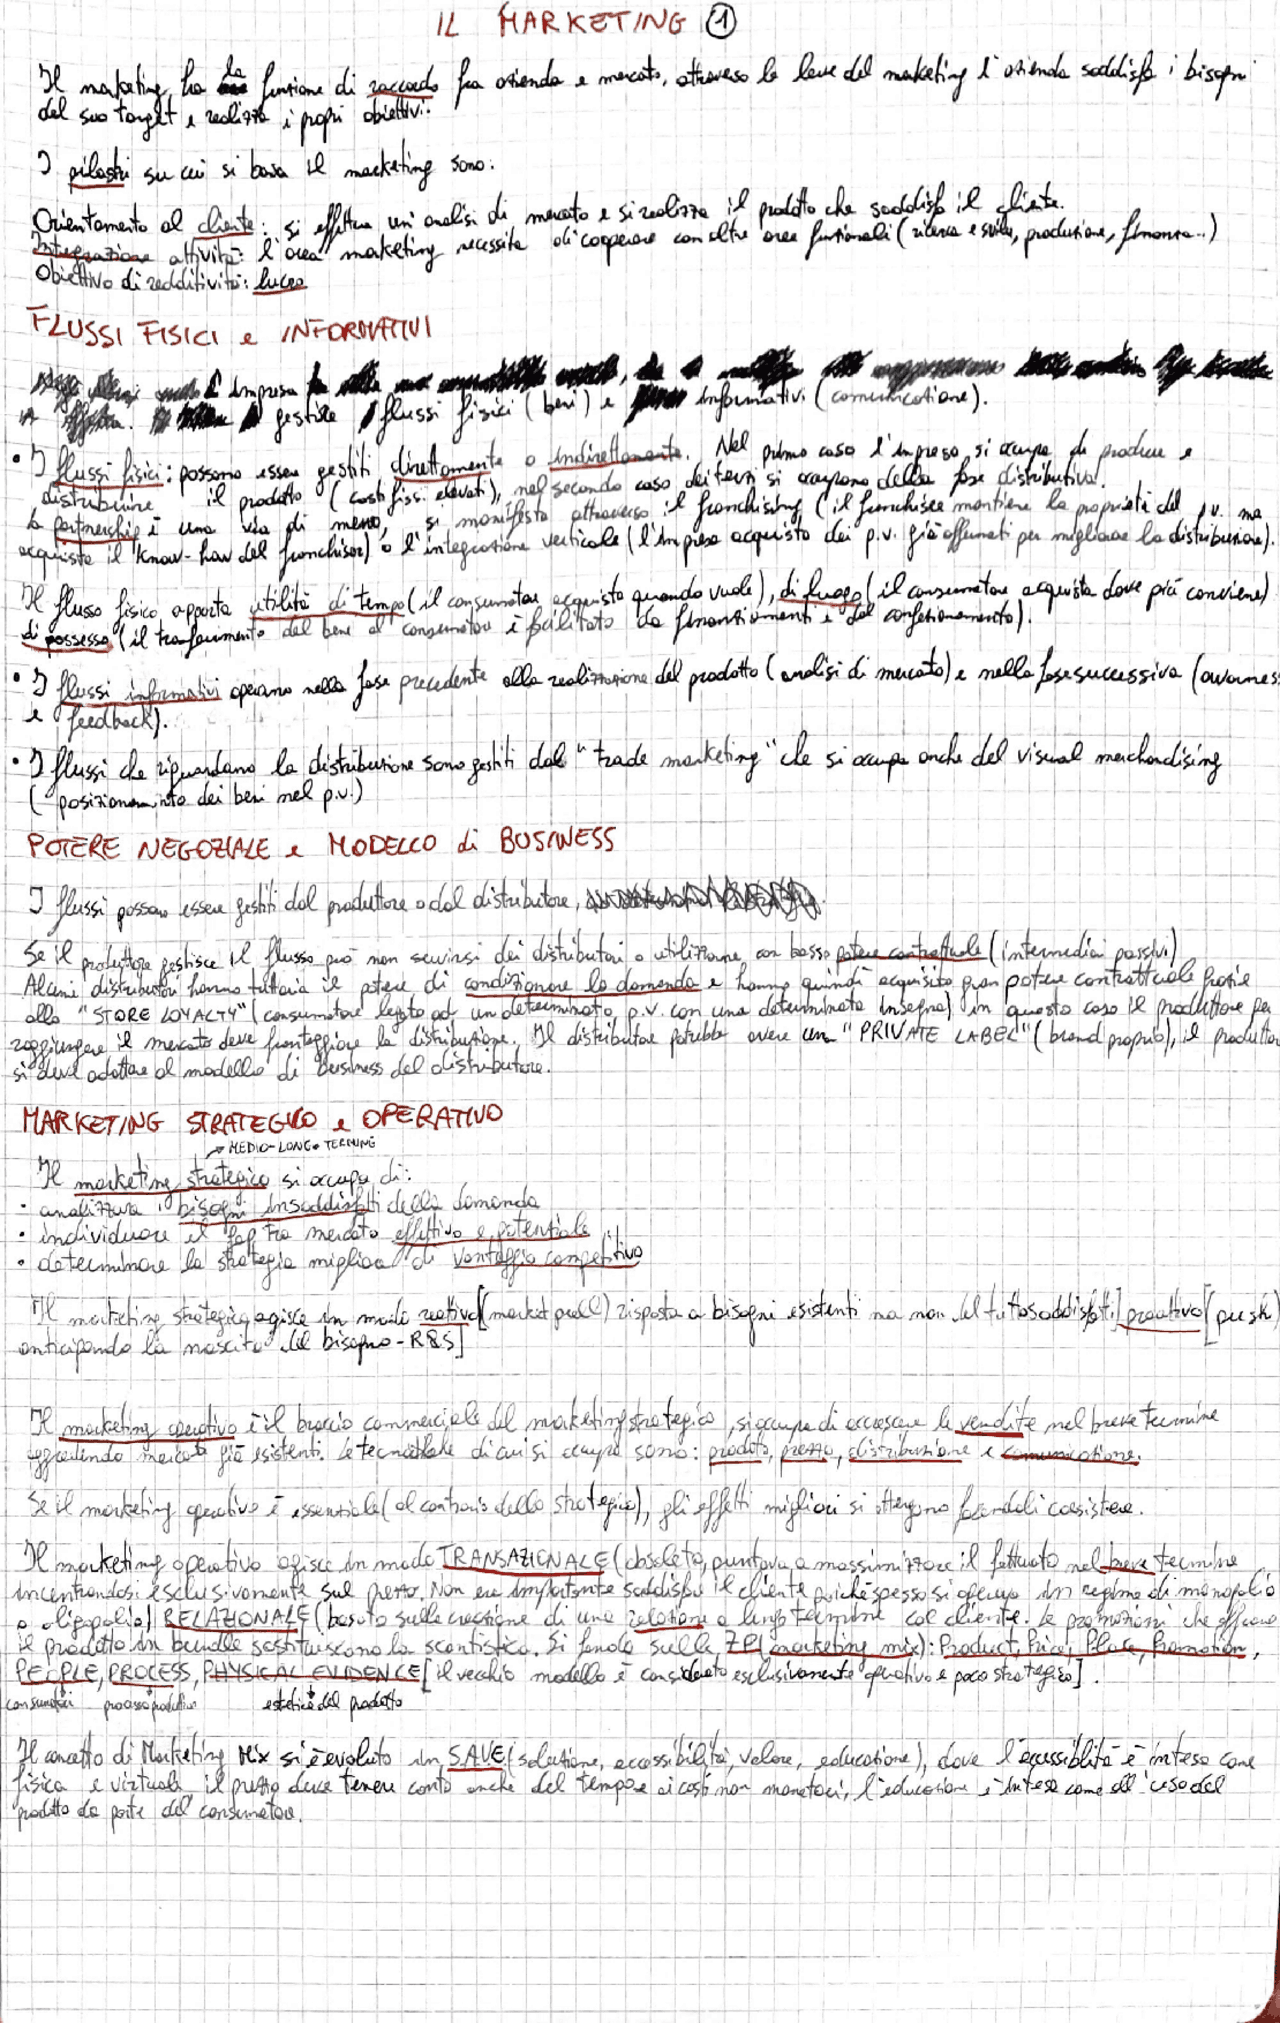 IL MARKETING 1
Il marketing ha la funzione di raccordo fra azienda e mercato, attraverso le leve del marketing l'azienda soddisfa i bisogni
del suo target e realizza i propri obiettivi.
I pilastri su cui si basa il marketing sono:
Orientamento al cliente: si effettua un'analisi di mercato e si realizza il prodotto che soddisfa il cliente.
Integrazione attività: l'area marketing necessita di cooperare con altre aree funzionali (ricerca e svilu, produzione, finanza..)
Obiettivo di redditività: lucro
FLUSSI FISICI e INFORMATIVI
L'impresa
gestire flussi fisici (beni) e informativi (comunicazione).
• I flussi fisici: possono essere gestiti direttamente o indirettamente. Nel primo caso l'impresa si occupa di produrre e
distribuire il prodotto (costi fissi elevati), nel secondo caso dei terzi si occupano della fase distributiva.
La partnership è una via di mezzo, si manifesta attraverso il franchising (il franchisee mantiene la proprietà del p.v. ma
acquista il know-how del franchisor) o l'integrazione verticale (l'impresa acquista dei p.v. già affermati per migliorare la distribuzione).
Il flusso fisico apporta utilità di tempo (il consumatore acquista quando vuole), di luogo (il consumatore acquista dove più conviene)
di possesso (il trasferimento del bene al consumatore è facilitato da finanziamenti e dal confezionamento).
• I flussi informativi operano nella fase precedente alla realizzazione del prodotto (analisi di mercato) e nella fase successiva (awarness
e feedback).
• I flussi che riguardano la distribuzione sono gestiti dal "trade marketing" che si occupa anche del visual merchandising
(posizionamento dei beni nel p.v.)
POTERE NEGOZIALE e MODELLO di BUSINESS
I flussi possono essere gestiti dal produttore o dal distributore,
Se il produttore gestisce il flusso può non servirsi dei distributori o utilizzarne con basso potere contrattuale (intermediari passivi)
Alcuni distributori hanno tuttavia il potere di condizionare la domanda e hanno quindi acquisito gran potere contrattuale grazie
alla "STORE LOYALTY" (consumatore legato ad un determinato p.v. con una determinata insegna) in questo caso il produttore per
raggiungere il mercato deve fronteggiare la distribuzione. Il distributore potrebbe avere una "PRIVATE LABEL" (brand proprio), il produttore
si deve adattare al modello di business del distributore.
MARKETING STRATEGICO e OPERATIVO
MEDIO-LUNGO TERMINE
Il marketing strategico si occupa di:
• analizzare i bisogni insoddisfatti della domanda
• individuare il gap tra mercato effettivo e potenziale
• determinare la strategia migliore di vantaggio competitivo
Il marketing strategico agisce in modo reattivo [(market pull) risposta a bisogni esistenti ma non del tutto soddisfatti] proattivo [push)
anticipando la nascita del bisogno - R&S]
Il marketing operativo è il braccio commerciale del marketing strategico, si occupa di accrescere le vendite nel breve termine
aggredendo mercati già esistenti. Le tecniche di cui si occupa sono: prodotto, prezzo, distribuzione e comunicazione.
Se il marketing operativo è essenziale (al contrario dello strategico), gli effetti migliori si ottengono facendoli coesistere.
Il marketing operativo agisce in modo TRANSAZIONALE (obsoleto, puntava a massimizzare il fatturato nel breve termine
incentrandosi esclusivamente sul prezzo. Non era importante soddisfare il cliente poiché spesso si operava in regime di monopolio
o oligopolio) RELAZIONALE (basato sulla creazione di una relazione a lungo termine col cliente. Le promozioni che offrono
il prodotto in bundle sostituiscono la scontistica. Si fonda sulle 7P (marketing mix): Product, Price, Place, Promotion,
PEOPLE, PROCESS, PHYSICAL EVIDENCE [il vecchio modello è considerato esclusivamente operativo e poco strategico].
consumatori processo produttivo estetica del prodotto
Il concetto di Marketing Mix si è evoluto in SAVE (soluzione, accessibilità, valore, educazione), dove l'accessiblità è intesa come
fisica e virtuale il prezzo deve tenere conto anche del tempo e ai costi non monetari, l'educazione è intesa come all'uso del
prodotto da parte del consumatore.